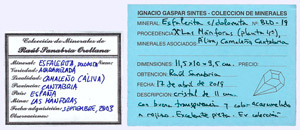 Colección de Minerales de
Raúl Sanabria Orellana
Mineral: ESFALERITA, DOLOMITA
Variedad: ACARAMELADA
Localidad: CAMALEÑO (ALIVA)
Provincia: CANTABRIA
País: ESPAÑA
Mina: LAS MÁNFORAS
Fecha adquisición: SEPTIEMBRE, 2003
IGNACIO GASPAR SINTES - COLECCIÓN DE MINERALES
MINERAL: Esfalerita c/dolomita Nº BLD-19
PROCEDENCIA: Las Mánforas (planta 4ª),
MINERALES ASOCIADOS: Aliva, Camaleño, Cantabria
DIMENSIONES: 11,5 x 10 x 3,5 cm.
OBTENCIÓN: Raúl Sanabria
FECHA: 17 de abril de 2015
DESCRIPCIÓN: cristal de 11 cm
con buena transparencia y color acaramelado
a rojizo. Excelente pieza. Ex colección